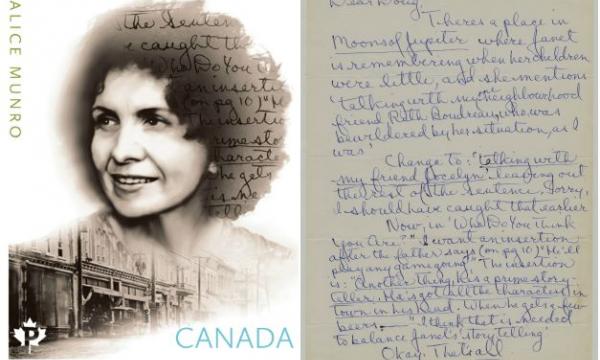 ALICE MUNRO
the Sentence
caught the
'Who Do You
an insertion
(on pg 10) "H
The insertion
prime story
characters
he gets
is nee
tell
P
CANADA
Dear Doug,
There's a place in
Moons of Jupiter where Janet
is remembering when her children
were little, and she mentions
'talking with my neighbourhood
friend Ruth Boudreau, who was
bewildered by her situation, as I
was'
Change to: 'talking with
my friend Jocelyn' leaving out
the rest of the sentence. Sorry,
I should have caught that earlier
Now, in 'Who Do You Think
You Are?' I want an insertion
after the father says (on pg 10) "He'll
play any game going" The insertion
is: "Another thing, he's a prime story-
teller. He's got all the characters in
town in his head. When he gets a few
beers — " I think that is needed
to balance Janet's 'story telling'
Okay. That's all